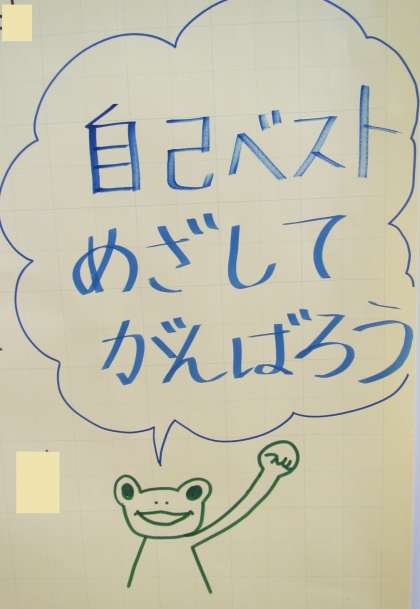 自己ベスト
めざして
がんばろう